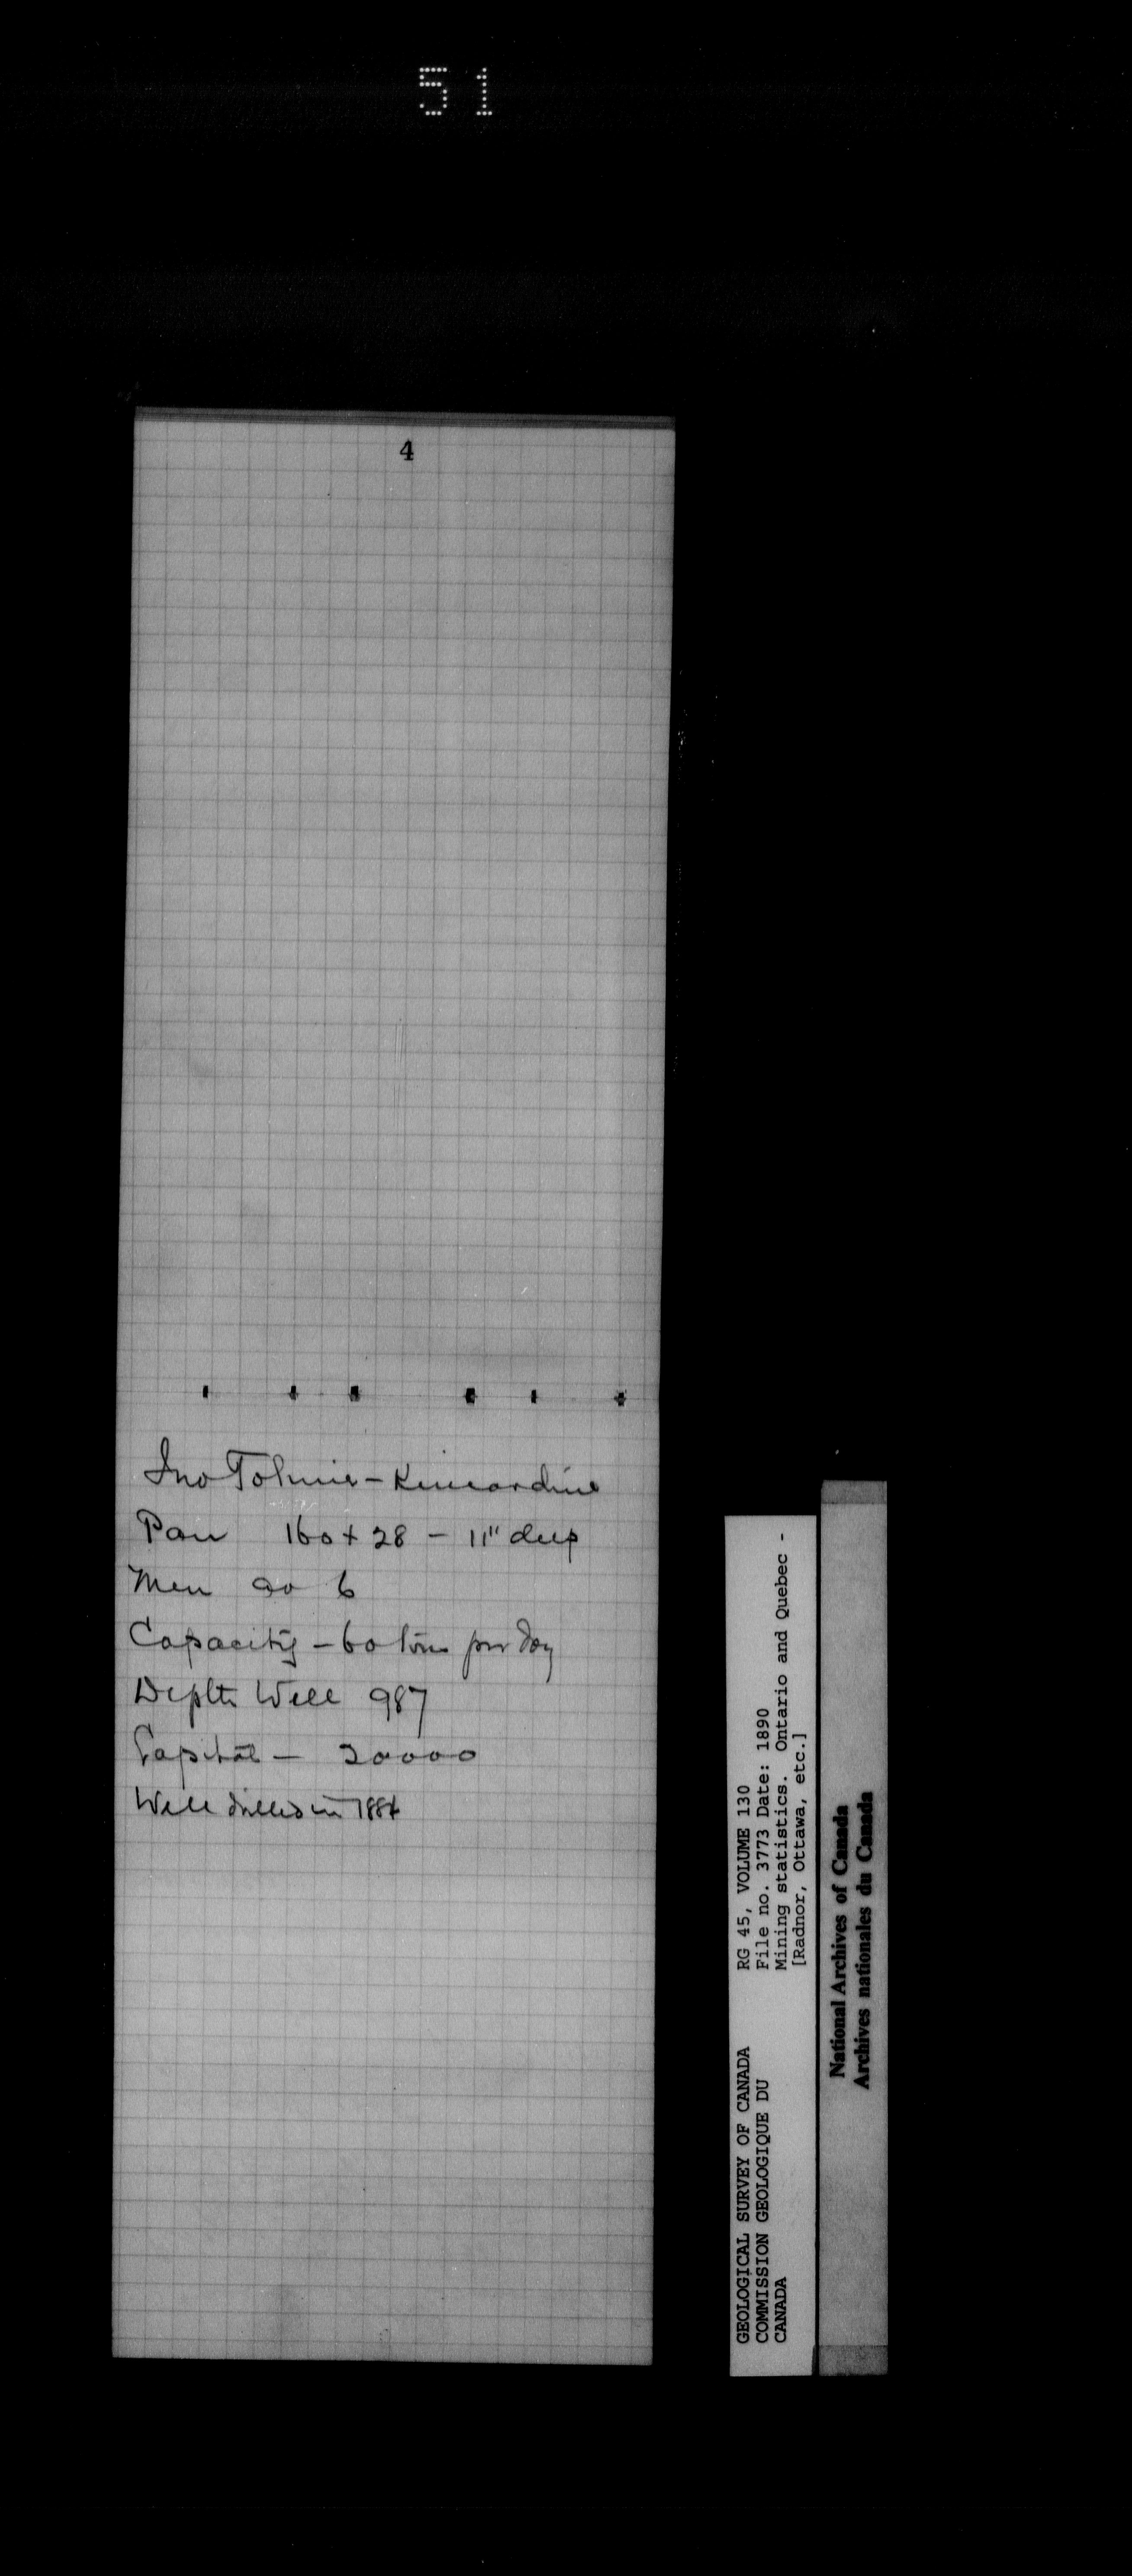 51
4
Jno Tolmie - Kincardine
Pan 160 + 28 - 11" deep
Men av 6
Capacity - 60 tons per day
Depth Well 987
Capital - 20000
Well drilled in 1884
GEOLOGICAL SURVEY OF CANADA
COMMISSION GEOLOGIQUE DU
CANADA
RG 45, VOLUME 130
File no. 3773 Date: 1890
Mining statistics. Ontario and Quebec -
[Radnor, Ottawa, etc.]
National Archives of Canada
Archives nationales du Canada